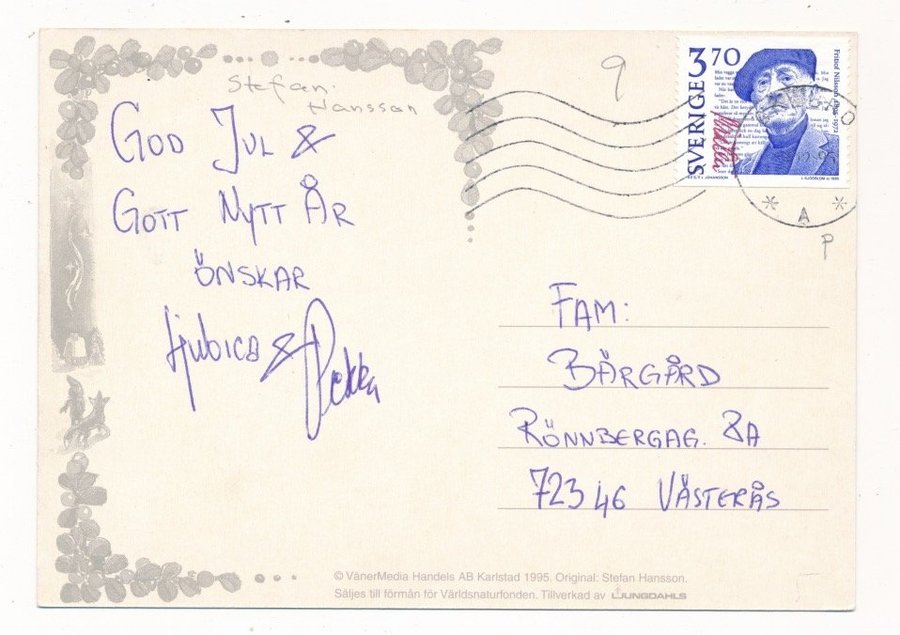 Stefan.
Hansson
9
GOD JUL &
GOTT NYTT ÅR
ÖNSKAR
Ljubica & Pekka
SVERIGE 3 70
Fritiof Nilsson 1895-1972
A
P
FAM:
BÄRGÅRD
RÖNNBERGAG. 8A
723 46 VÄSTERÅS
© VänerMedia Handels AB Karlstad 1995. Original: Stefan Hansson.
Säljes till förmån för Världsnaturfonden. Tillverkad av LJUNGDAHLS